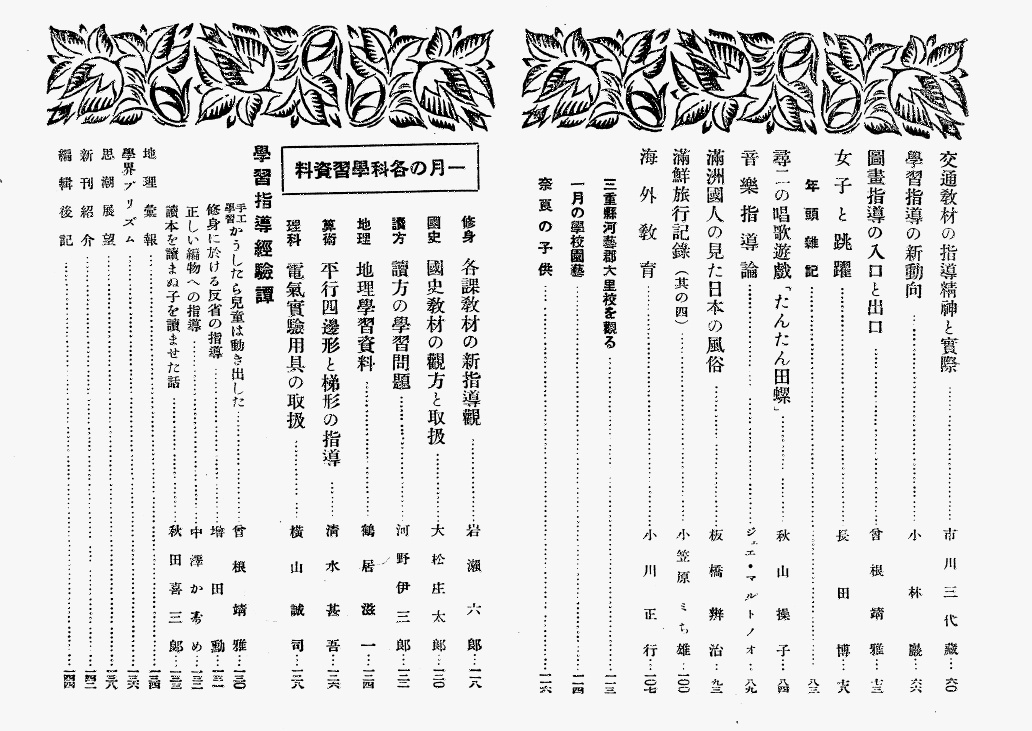 交通教材の指導精神と實際…市川三代藏…六〇
學習指導の新動向…小林巖…六六
圖畫指導の入口と出口…曾根靖雅…七三
女子と跳躍…長田博…七八
年頭雜記…八三
尋二の唱歌遊戲「たんたん田螺」…秋山操子…八四
音樂指導論…ジェエ・マルトノオ…八九
滿洲國人の見た日本の風俗…板橋辨治…九三
滿鮮旅行記錄(其の四)…小笠原ミち雄…一〇〇
海外教育…小川正行…一〇七
三重縣河藝郡大里校を觀る…一一三
一月の學校園藝…一一四
奈良の子供…一一六
一月の各科學習資料
修身 各課教材の新指導觀…岩瀬六郎…一二八
國史 國史教材の觀方と取扱…大松庄太郎…一三〇
讀方 讀方の學習問題…河野伊三郎…一三二
地理 地理學習資料…鶴居滋一…一三四
算術 平行四邊形と梯形の指導…清水甚吾…一三六
理科 電氣實驗用具の取扱…横山誠司…一三八
學習指導經驗譚
手工學習かうしたら兒童は動き出した…曾根靖雅…一三〇
修身に於ける反省の指導…增田勳…一三一
正しい編物への指導…中澤かめ…一三二
讀本を讀まぬ子を讀ませた話…秋田喜三郎…一三三
地理彙報…一三四
學界プリズム…一三六
思潮展望…一三八
新刊紹介…一四二
編輯後記…一四四